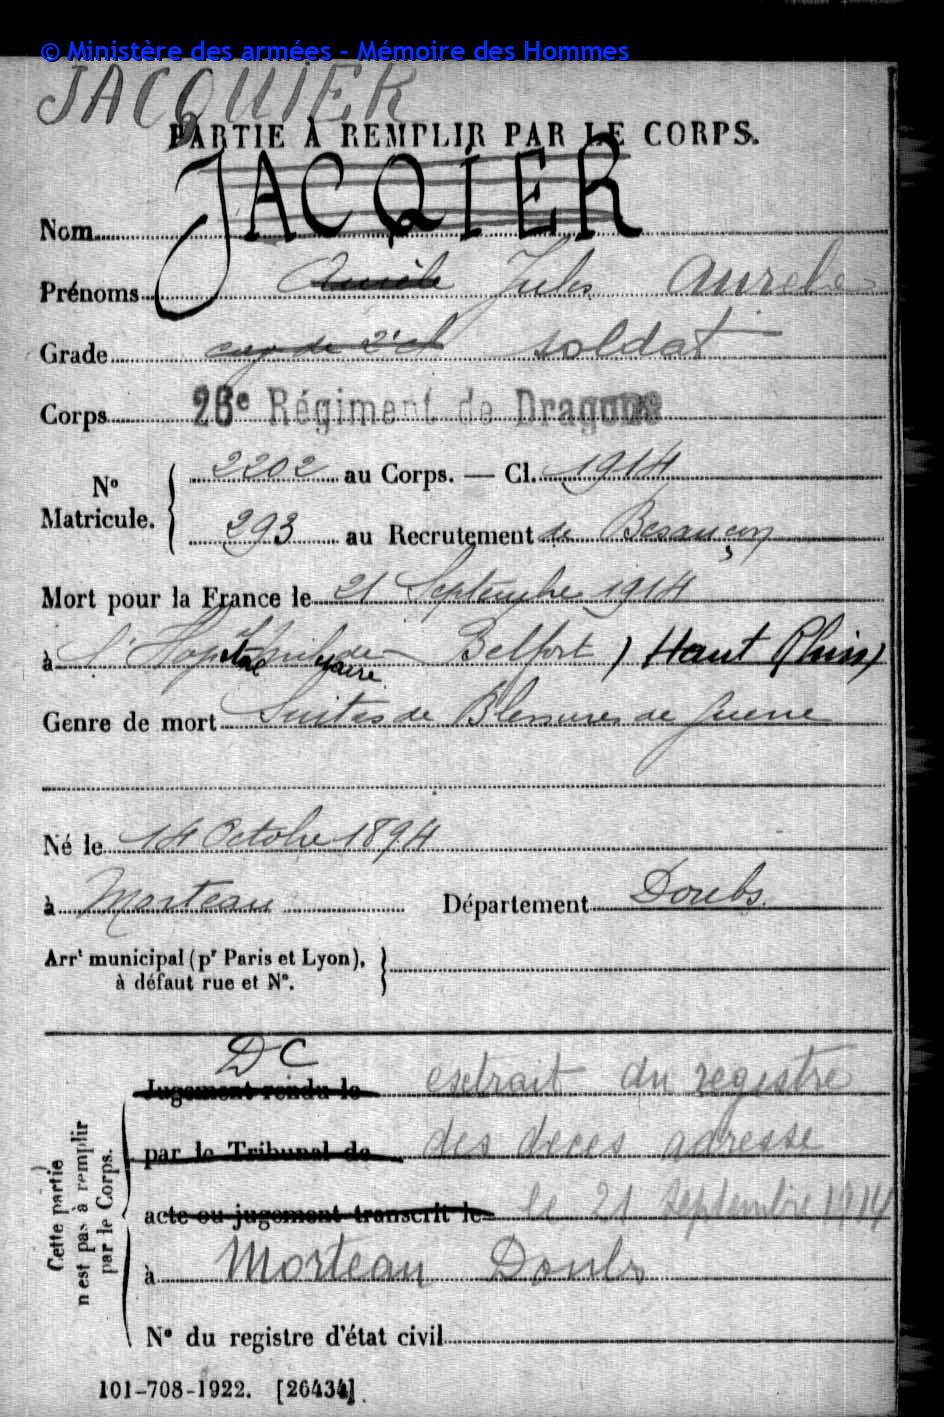 © Ministère des armées - Mémoire des Hommes
JACQUIER
PARTIE À REMPLIR PAR LE CORPS.
Nom JACQIER
Prénoms Aurèle Jules Aurele
Grade cav de 2e cl soldat
Corps 26e Régiment de Dragons
No Matricule. 2202 au Corps. — Cl. 1914
293 au Recrutement de Besançon
Mort pour la France le 21 Septembre 1914
à l'Hôpital militaire de Belfort (Haut Rhin)
Genre de mort Suites de Blessures de guerre
Né le 14 Octobre 1894
à Morteau Département Doubs
Arrt municipal (pr Paris et Lyon),
à défaut rue et No.
DC
Jugement rendu le extrait du registre
par le Tribunal de des deces adresse
acte ou jugement transcrit le le 21 Septembre 1914
à Morteau Doubs
No du registre d'état civil
Cette partie
n'est pas à remplir
par le Corps.
101-708-1922. [26434]